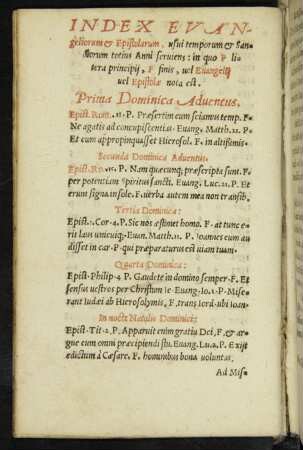 INDEX EVAN-
geliorum & Epistolarum, usui temporum & San-
ctorum totius Anni serviens: in quo P li
tera principij, F finis, vel Euangelij
vel Epistolæ nota est.
Prima Dominica Adventus.
Epist. Rom. P. Præsertim cum sciamus temp. F.
Ne agatis ad concupiscentias. Euang. Matth. 21. P.
Et cum appropinquasset Hierosol. F. in altissimis.
Secunda Dominica Adventus.
Epist. Ro. 15. P. Nam quæcunq; præscripta sunt. F.
per potentiam spiritus sancti. Euang. Luc. 21. P. Et
erunt signa in sole. F. verba autem mea non transib.
Tertia Dominica:
Epist. 1. Cor. 4. P. Sic nos æstimet homo. F. at tunc e
rit laus unicuiq;. Euan. Matth. 11. P. Ioannes cum au
disset in car. F. qui præparaturus est viam tuam.
Quarta Dominica:
Epist. Philip. 4. P. Gaudete in domino semper. F. Et
sensus vestros per Christum Ie. Euang. Io. 1. P. Mise-
rant Iudæi ab Hierosolymis, F. trans Iord. ubi Ioan.
In nocte Natalis Dominici:
Epist. Tit. 2. P. Apparuit enim gratia Dei, F. & ar-
gue cum omni præcipiendi stu. Euang. Lu. 2. P. Exijt
edictum à Cæsare. F. hominibus bona voluntas.
Ad Miss